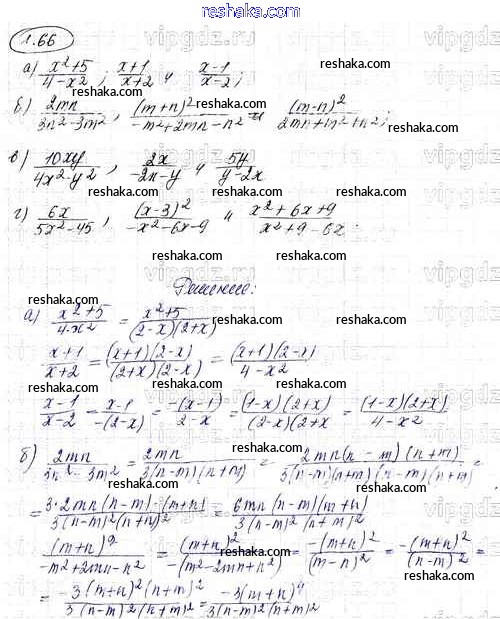 1.66
а) (x²+5)/(4-x²); (x+1)/(x+2) и (x-1)/(x-2);
б) 2mn/(3n²-3m²), (m+n)²/(-m²+2mn-n²) и (m-n)²/(2mn+m²+n²);
в) 10xy/(4x²-y²), 2x/(-2x-y) и 5y/(y-2x)
г) 6x/(5x²-45), (x-3)²/(-x²-6x-9) и (x²+6x+9)/(x²+9-6x).
Решение:
а) (x²+5)/(4-x²) = (x²+5)/((2-x)(2+x))
(x+1)/(x+2) = ((x+1)(2-x))/((2+x)(2-x)) = ((x+1)(2-x))/(4-x²)
(x-1)/(x-2) = (x-1)/(-(2-x)) = (-(x-1))/(2-x) = ((1-x)(2+x))/((2-x)(2+x) = ((1-x)(2+x))/(4-x²)
б) 2mn/(3n²-3m²) = 2mn/(3(n-m)(n+m)) = (2mn(n-m)(n+m))/(3(n-m)(n+m)(n-m)(n+m)) =
= (3·2mn(n-m)·(m+n))/(3(n-m)²(n+n)²) = (6mn(n-m)(m+n))/(3(n-m)²(n+m)²)
(m+n)²/(-m²+2mn-n²) = (m+n)²/(-(m²-2mn+n²)) = (-(m+n)²)/(m-n)² = (-(m+n)²)/(n-m)² =
= (-3(m+n)²(n+m)²)/(3(n-m)²(n+m)²) = (-3(m+n)⁴)/(3(n-m)²(n+m)²)
vipgdz.ru
reshaka.com